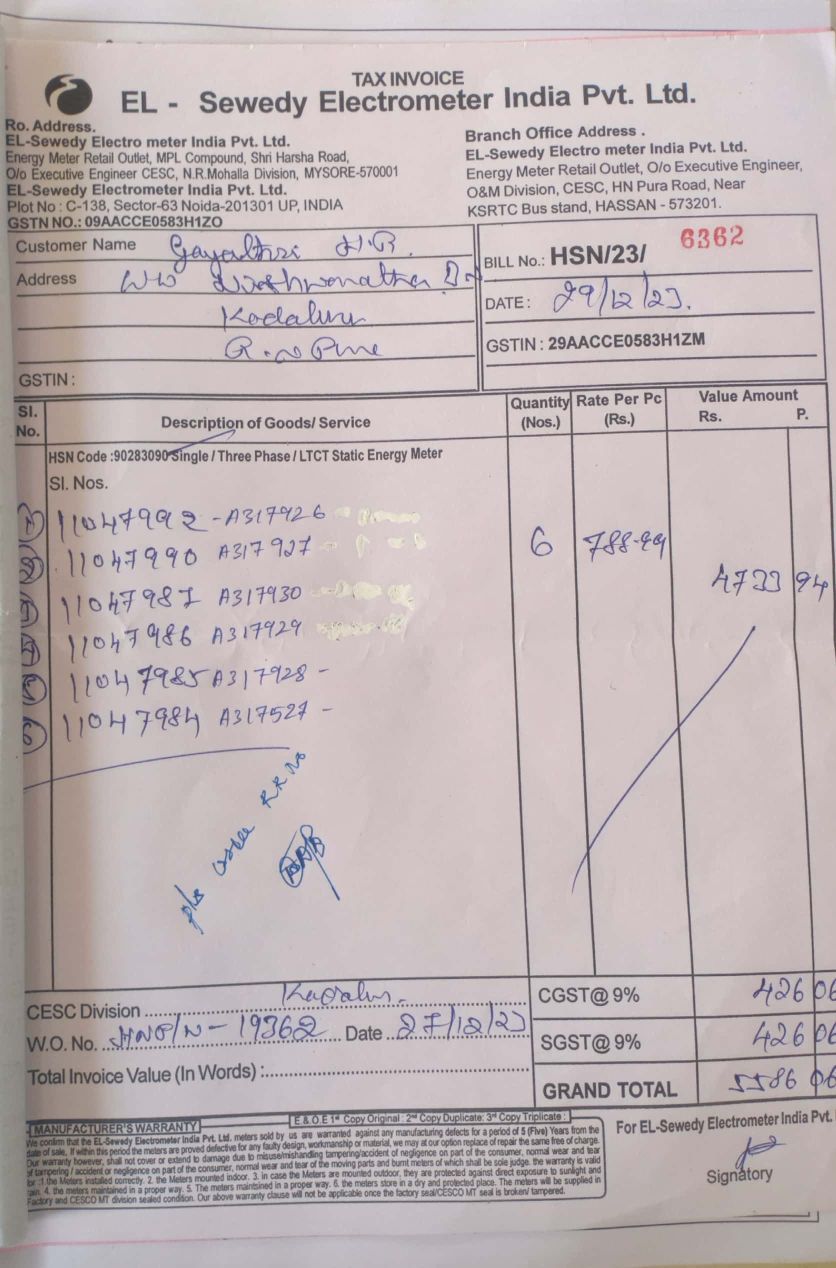 TAX INVOICE
EL - Sewedy Electrometer India Pvt. Ltd.
Ro. Address.
EL-Sewedy Electro meter India Pvt. Ltd.
Energy Meter Retail Outlet, MPL Compound, Shri Harsha Road,
O/o Executive Engineer CESC, N.R.Mohalla Division, MYSORE-570001
EL-Sewedy Electrometer India Pvt. Ltd.
Plot No : C-138, Sector-63 Noida-201301 UP, INDIA
GSTN NO.: 09AACCE0583H1ZO
Branch Office Address .
EL-Sewedy Electro meter India Pvt. Ltd.
Energy Meter Retail Outlet, O/o Executive Engineer,
O&M Division, CESC, HN Pura Road, Near
KSRTC Bus stand, HASSAN - 573201.
Customer Name Gayathri H.R.
Address W/o
Kadaluru
GSTIN :
BILL No.: HSN/23/ 6362
DATE : 29/12/23.
GSTIN : 29AACCE0583H1ZM
Sl. No. Description of Goods/ Service Quantity (Nos.) Rate Per Pc (Rs.) Value Amount Rs. P.
HSN Code :90283090 Single / Three Phase / LTCT Static Energy Meter
Sl. Nos.
11047992 - A317926
11047990 A317927 - 6 788-99
11047987 A317930 4733 94
11047986 A317929
11047985 A317928 -
11047984 A317527 -
pls RR No
CESC Division
W.O. No. 19362 Date 27/12/23
Total Invoice Value (In Words) :
CGST@ 9% 426 06
SGST@ 9% 426 06
GRAND TOTAL 5586 06
E & O E 1st Copy Original : 2nd Copy Duplicate: 3rd Copy Triplicate :
MANUFACTURER'S WARRANTY
We confirm that the EL-Sewedy Electrometer India Pvt. Ltd. meters sold by us are warranted against any manufacturing defects for a period of 5 (Five) Years from the
date of sale, If within this period the meters are proved defective for any faulty design, workmanship or material, we may at our option replace of repair the same free of charge.
Our warranty however, shall not cover or extend to damage due to misuse/mishandling tampering/accident of negligence on part of the consumer, normal wear and tear
of tampering / accident or negligence on part of the consumer, normal wear and tear of the moving parts and burnt meters of which shall be sole judge. the warranty is valid
for :1.the Meters installed correctly. 2. the Meters mounted indoor. 3. in case the Meters are mounted outdoor, they are protected against direct exposure to sunlight and
rain. 4. the meters maintained in a proper way. 5. The meters maintained in a proper way. 6. the meters store in a dry and protected place. The meters will be supplied in
Factory and CESCO MT division sealed condition. Our above warranty clause will not be applicable once the factory seal/CESCO MT seal is broken/ tampered.
For EL-Sewedy Electrometer India Pvt.
Signatory